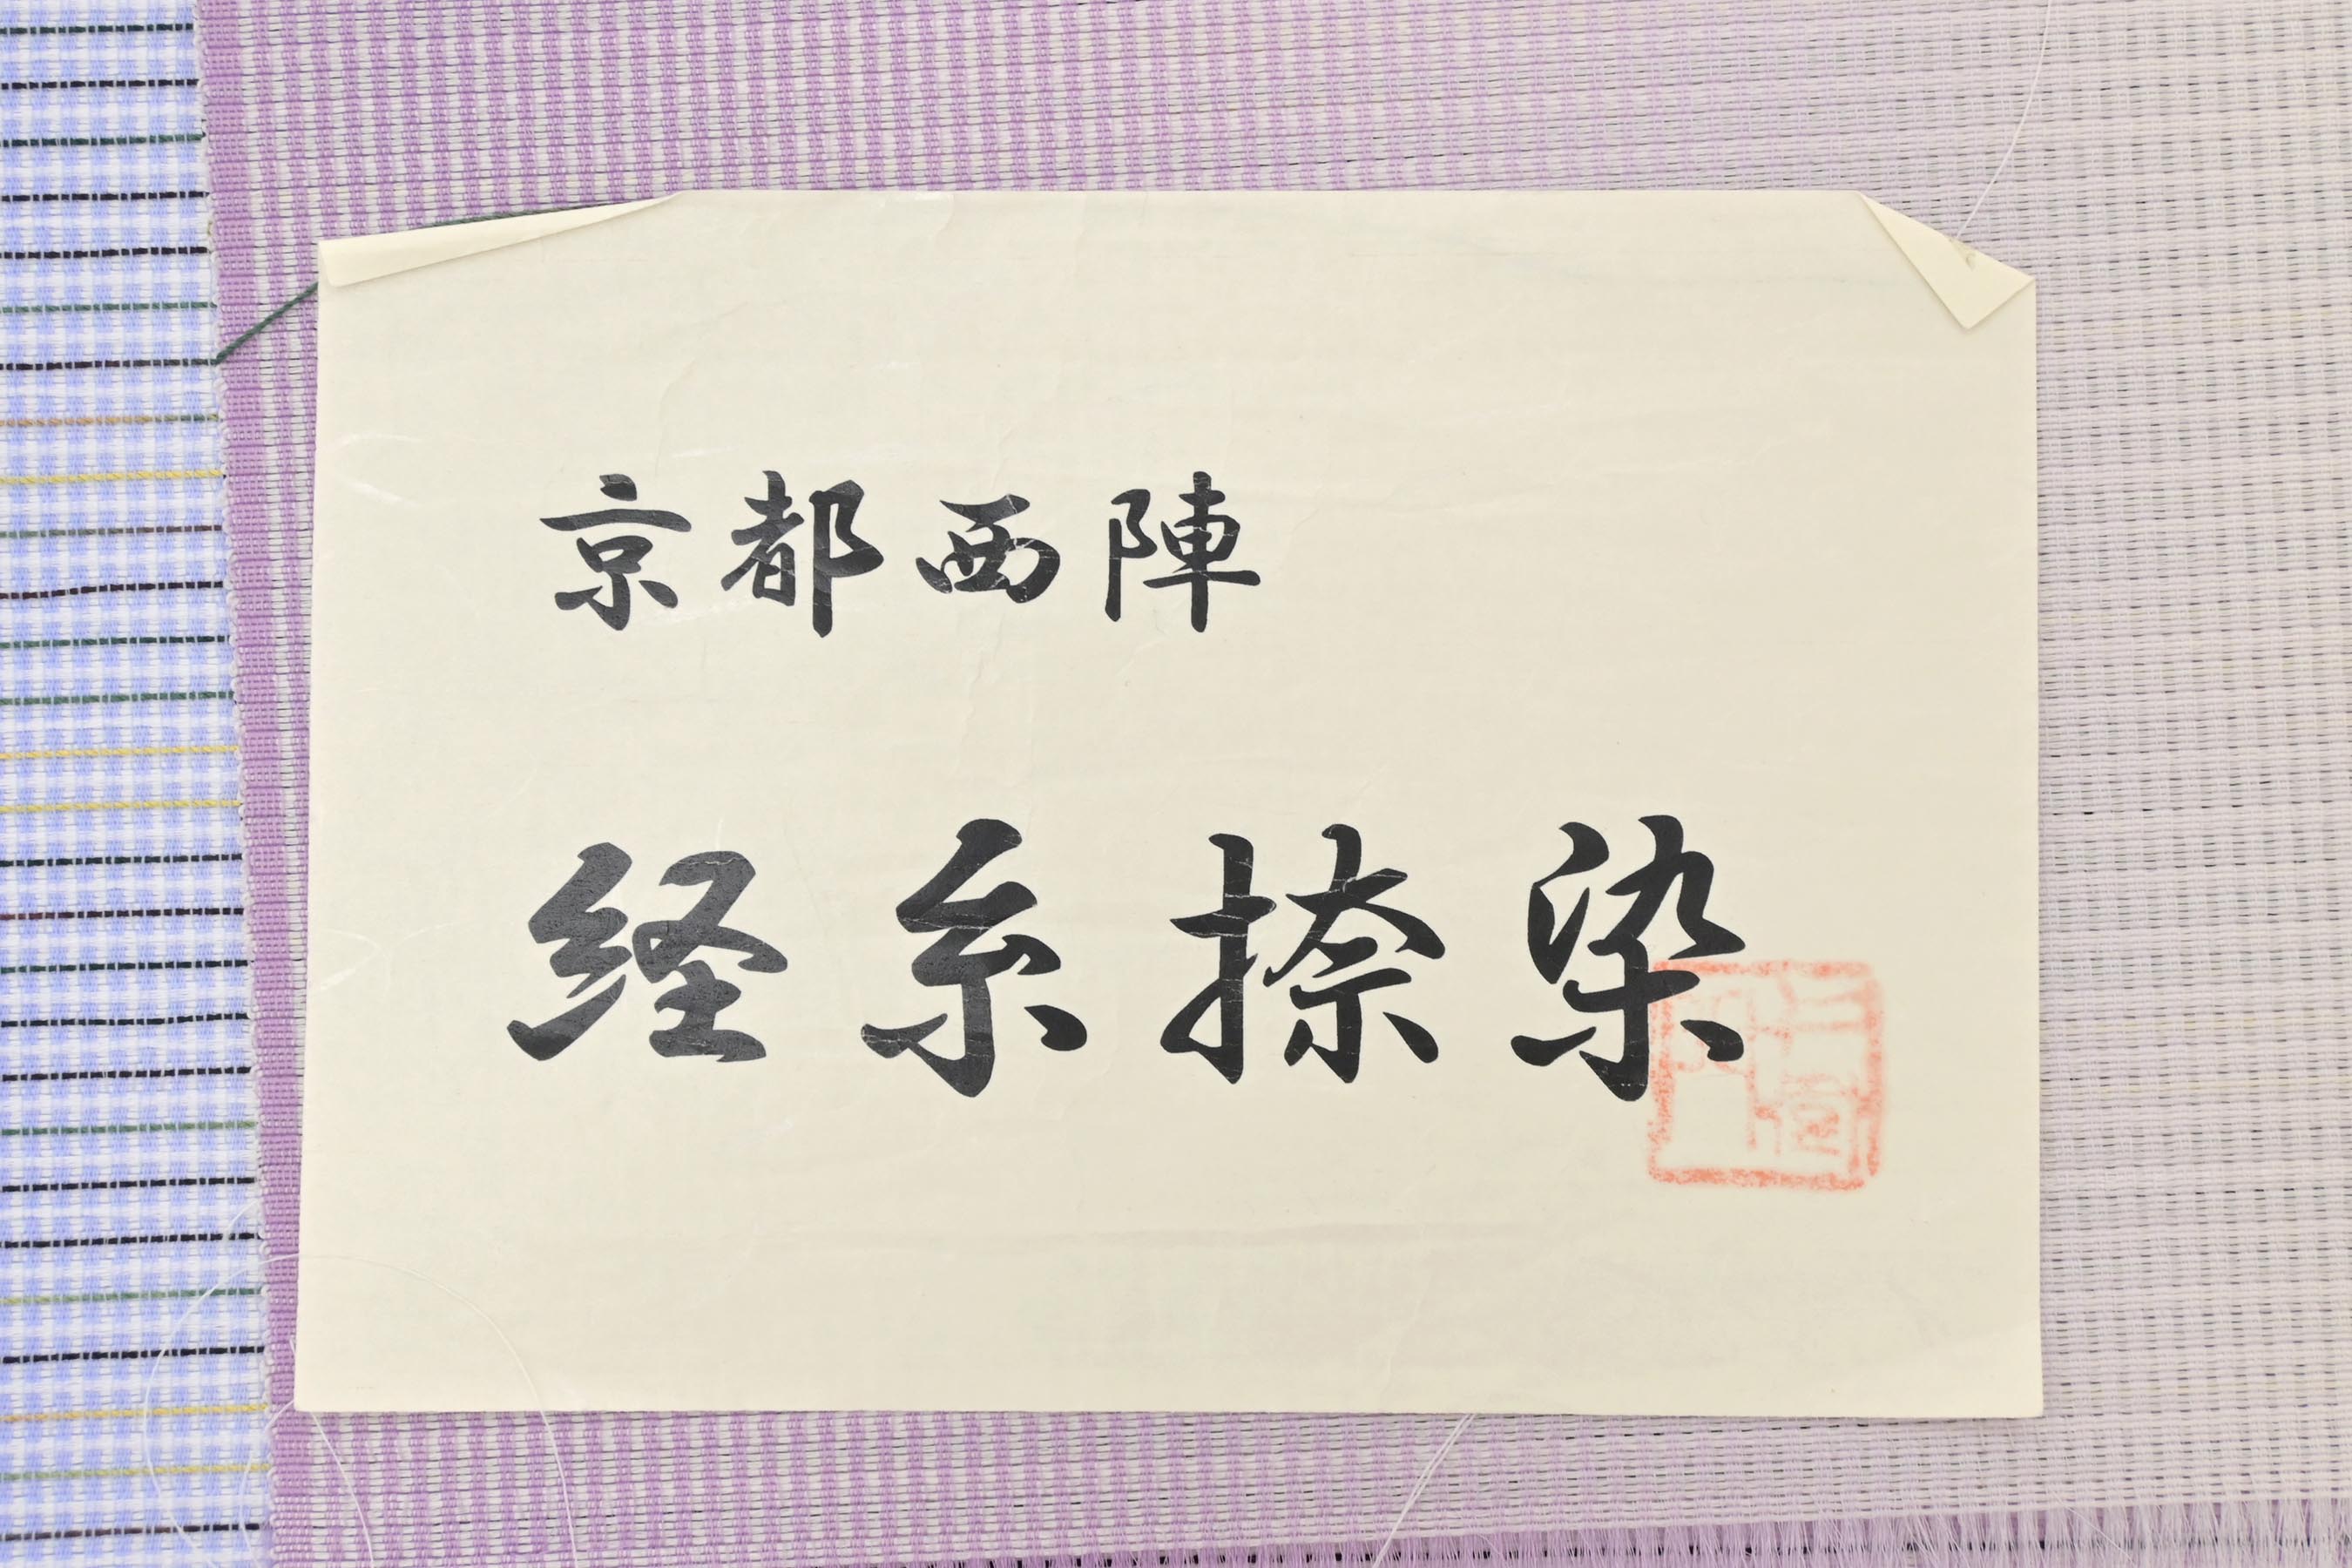 京都西陣
経糸捺染